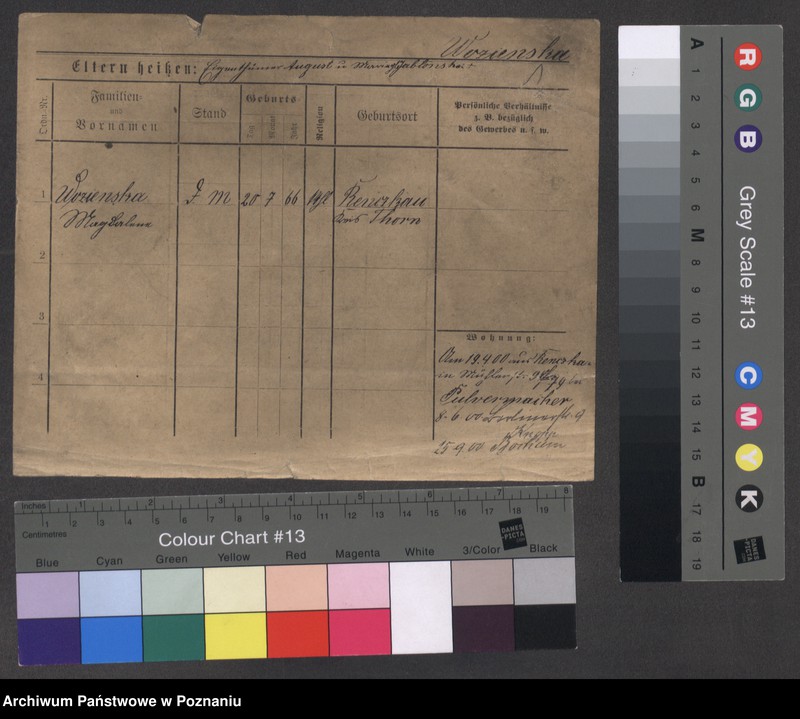 Wozienska
Eltern heißen: Eigenthümer August u
Ordn.-Nr.
Familien-
und
Vornamen
Stand
Geburts
Tag
Monat
Jahr
Religion
Geburtsort
Persönliche Verhältnisse
z. B. bezüglich
des Gewerbes u. s. w.
1
Wozienska
Magdalena
D M
20 7 66
Kenczkau
Kreis Thorn
2
3
4
Wohnung:
Am 19.4.00 aus
in
Pulvermacher
8. 6 00 Berlinerstr. 9
Knopp
25 9. 00 Bochum
A
1
2
3
4
5
6
M
8
9
10
11
12
13
14
15
B
17
18
19
R
G
B
Grey Scale #13
C
M
Y
K
DANES
PICTA
Inches
1
2
3
4
5
6
7
8
Centimetres
1 2 3 4 5 6 7 8 9 10 11 12 13 14 15 16 17 18 19
Colour Chart #13
DANES
PICTA
Blue
Cyan
Green
Yellow
Red
Magenta
White
3/Color
Black
Archiwum Państwowe w Poznaniu